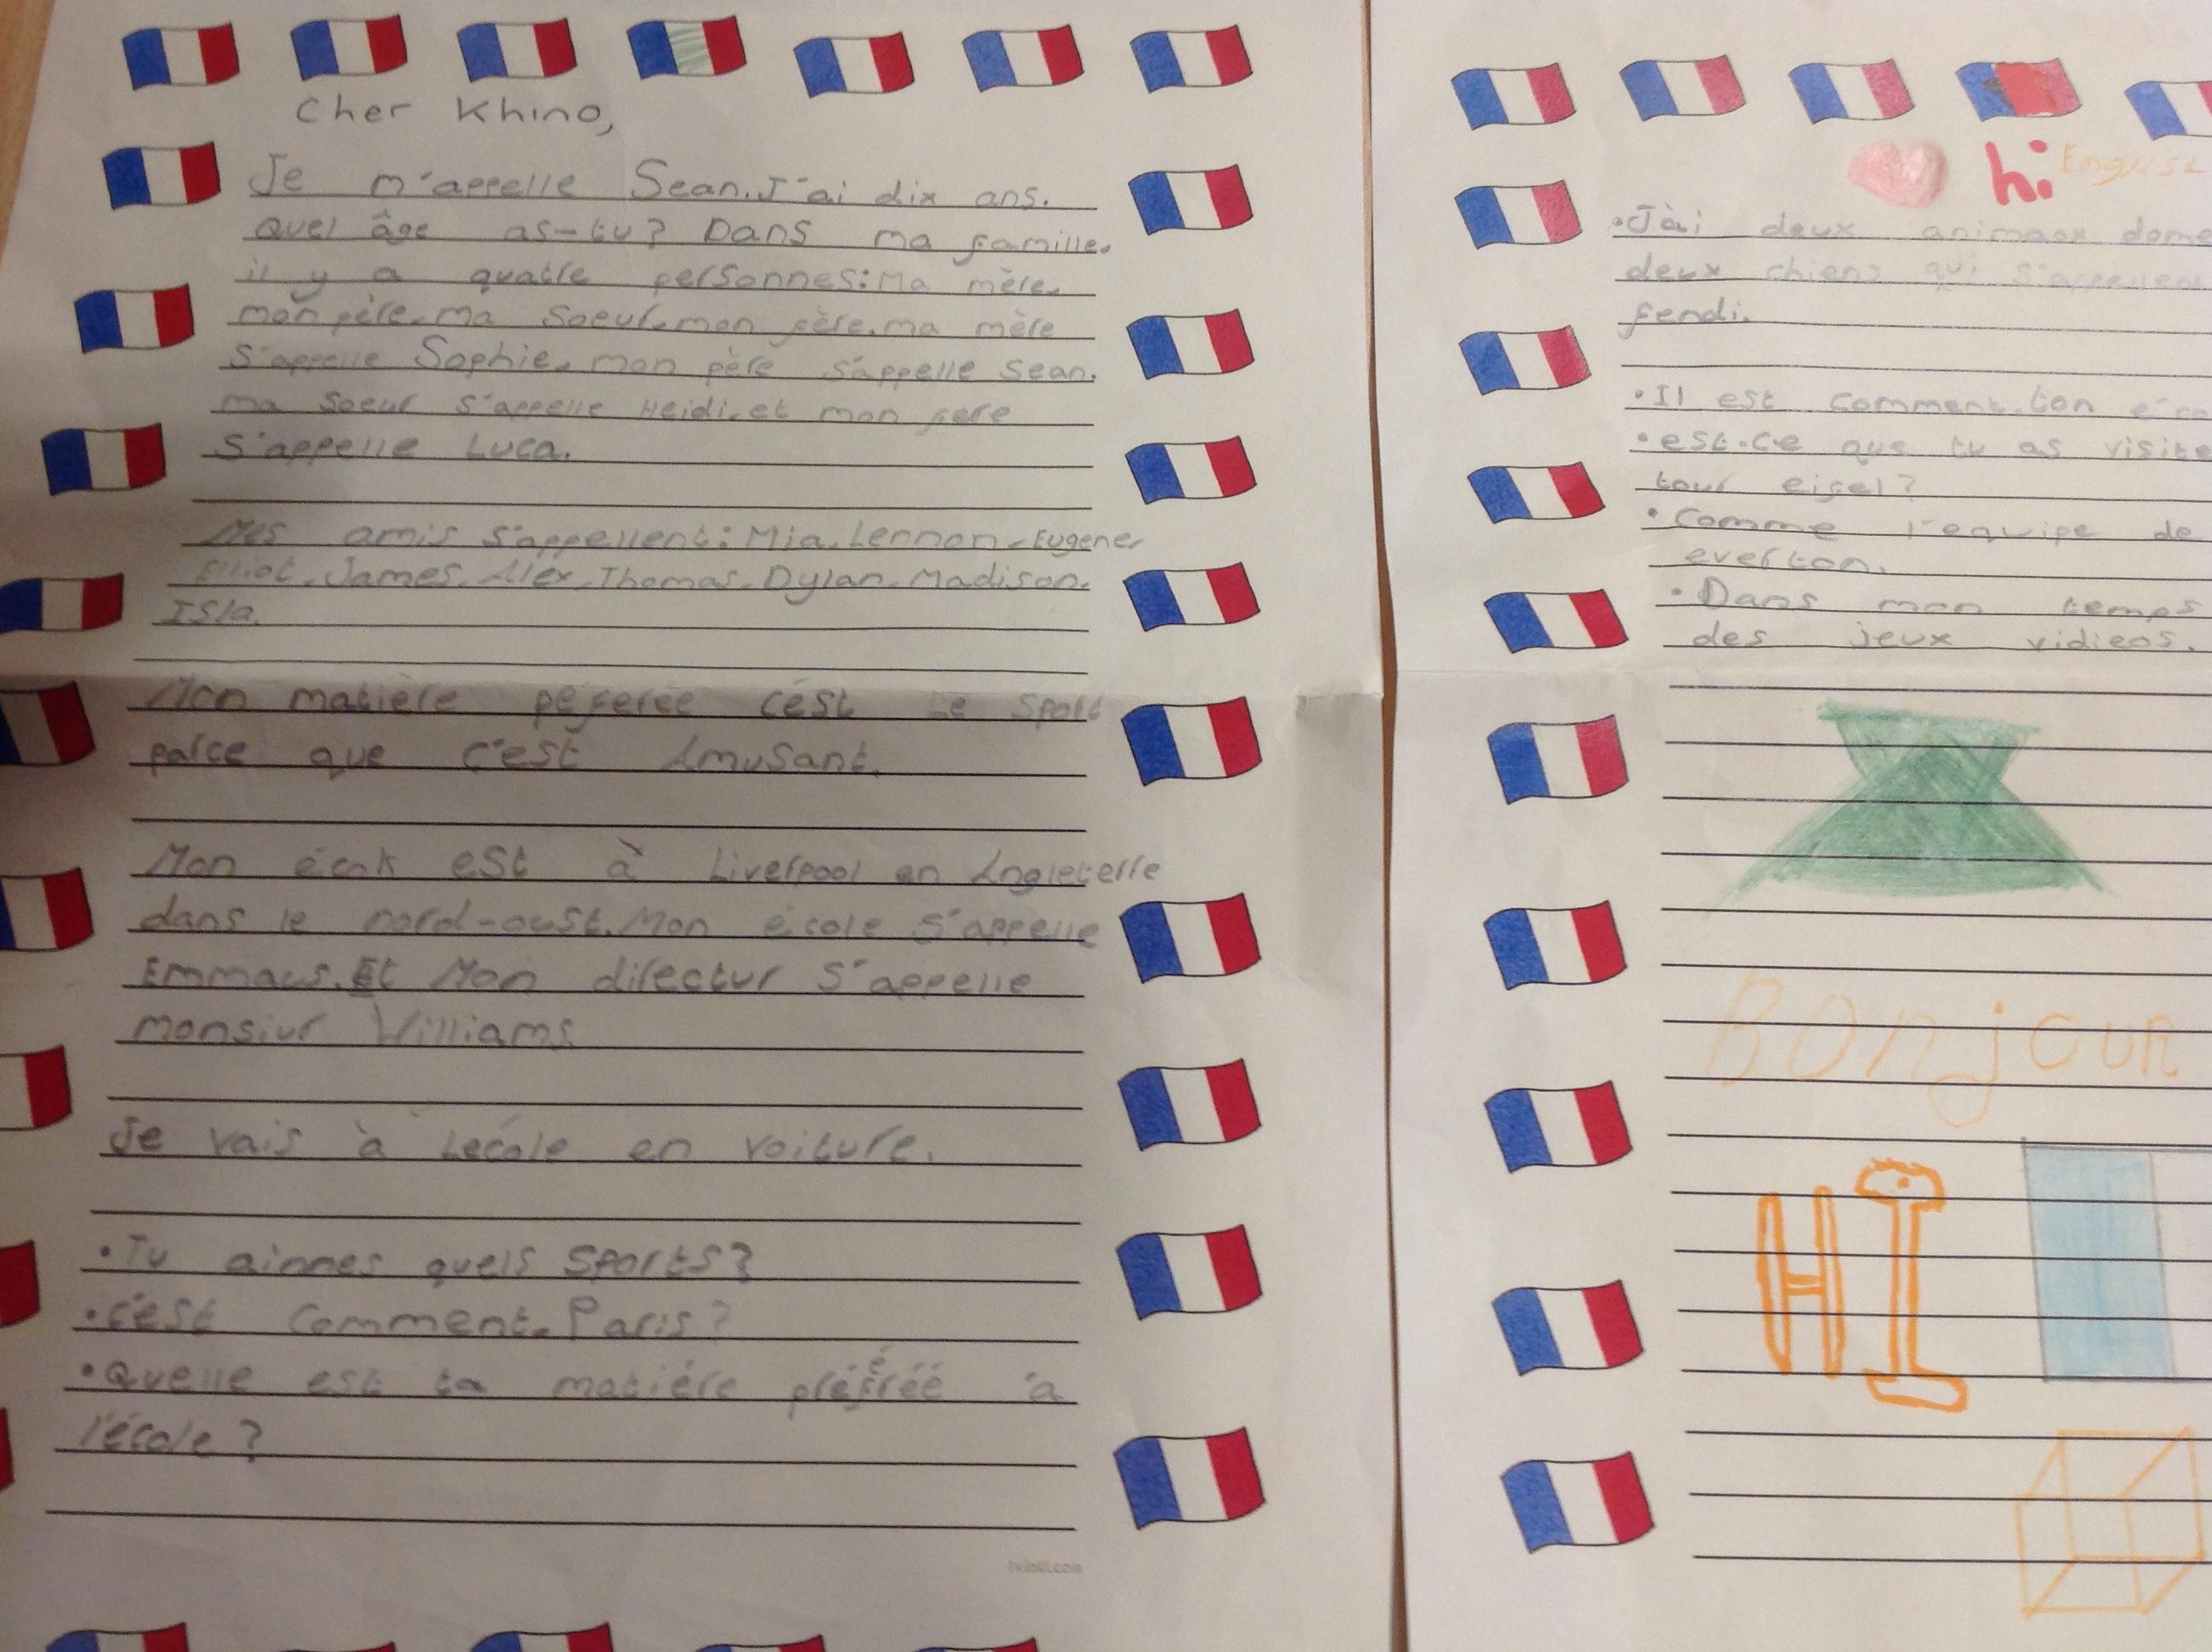 Cher Khino,
Je m'appelle Sean. J'ai dix ans.
Quel âge as-tu? Dans ma famille,
il y a quatre personnes: Ma mère,
mon père, ma soeur, mon fère. ma mère
s'appelle Sophie, mon père s'appelle Sean.
ma soeur s'appelle Heidi, et mon fere
s'appelle Luca.
Mes amis s'appellent: Mia, Lennon, Eugene,
Elliot, James, Alex, Thomas, Dylan, Madison,
Isla.
Mon matière péferée cést Le sport
parce que c'est Amusant.
Mon école est à Liverpool en Angleterre
dans le nord-oust. Mon école s'appelle
Emmaus. Et Mon directur s'appelle
monsiur Williams
Je vais à Lecole en voiture.
•Tu aimmes quels sports?
•c'est Comment, Paris?
•Quelle est ta matiére préférée à
l'école?
hi English
•J'ài deux animaux dome
deux chiens qui s'appellent
fendi.
•Il est comment, ton éco
•est-ce que tu as visite
tour eifel?
•Comme l'equipe de
everton.
•Dans mon temps
des jeux vidieos.
Bonjour
HI